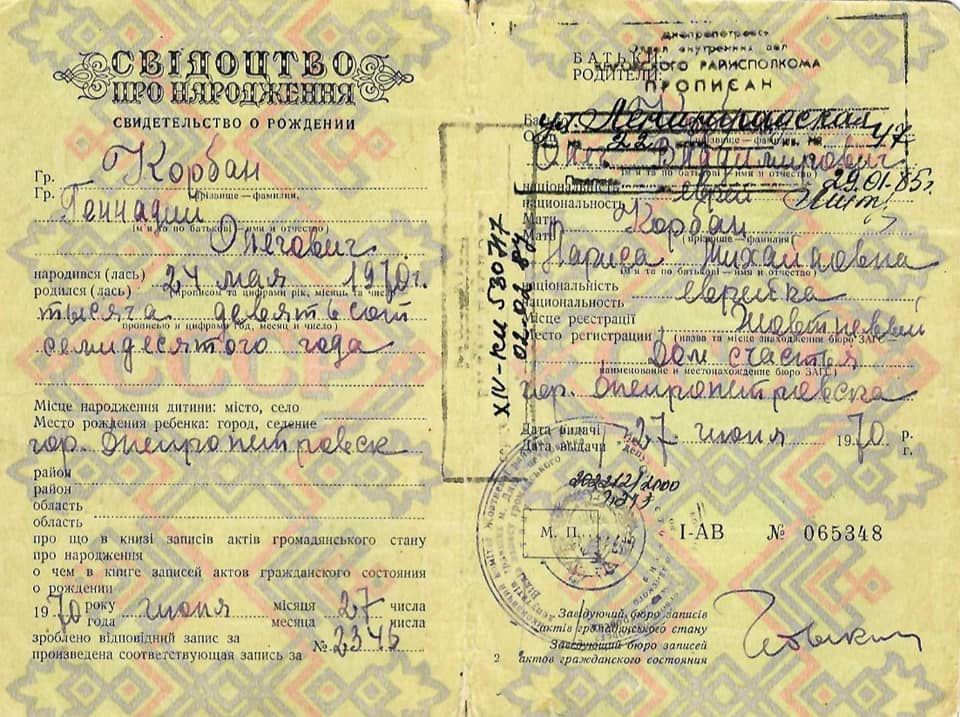 СВІДОЦТВО
ПРО НАРОДЖЕННЯ
СВИДЕТЕЛЬСТВО О РОЖДЕНИИ
Гр. Корбан
Гр. прізвище — фамилия,
Геннадий
(ім'я та по батькові — имя и отчество)
Олегович
народився (лась) 24 мая 1970 г.
родился (лась) (прописом та цифрами рік, місяць та число)
тысяча девятьсот
прописью и цифрами год, месяц и число)
семидесятого года
Місце народження дитини: місто, село
Место рождения ребенка: город, селение
гор. Днепропетровск
район
район
область
область
про що в книзі записів актів громадянського стану
про народження
о чем в книге записей актов гражданского состояния
о рождении
1970 року июня місяця 27 числа
года месяца числа
зроблено відповідний запис за
произведена соответствующая запись за № 2345
Днепропетровск
отдел внутренних дел
КИРОВСКОГО РАЙИСПОЛКОМА
ПРОПИСАН
БАТЬКИ:
РОДИТЕЛИ:
ул. Ленинградская
22 кв. № 47
Корбан
прізвище — фамилия
Олег Владимирович
(ім'я та по батькові — имя и отчество)
29.01.85г.
національність
национальность еврей
Мати
Мать Корбан
(прізвище — фамилия)
Лариса Михайловна
(ім'я та по батькові — имя и отчество)
національність
национальность еврейка
Місце реєстрації Жовтневый
Место регистрации (назва та місце знаходження бюро ЗАГС —
Дом счастья
наименование и местонахождение бюро ЗАГС)
гор. Днепропетровска
XIV-КИ 530747
02.02.87
Дата видачі
Дата выдачи 27 июня 1970 р.
г.
М. П.
I-АВ № 065348
Завідуючий бюро записів
актів громадянського стану
Заведующий бюро записей
актов гражданского состояния
2